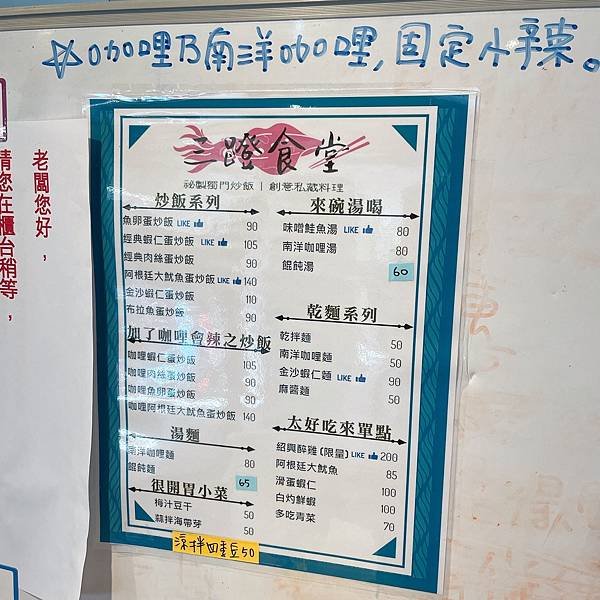 ☆咖哩乃南洋咖哩,固定小辣。
老闆您好,
請您在櫃台稍等,
二蹬食堂
祕製獨門炒飯 | 創意私藏料理
炒飯系列
魚卵蛋炒飯 LIKE 90
經典蝦仁蛋炒飯 LIKE 105
經典肉絲蛋炒飯 90
阿根廷大魷魚蛋炒飯 LIKE 140
金沙蝦仁蛋炒飯 110
布拉魚蛋炒飯 90
加了咖哩會辣之炒飯
咖哩蝦仁蛋炒飯 105
咖哩肉絲蛋炒飯 90
咖哩魚卵蛋炒飯 90
咖哩阿根廷大魷魚蛋炒飯 140
湯麵
南洋咖哩麵 80
餛飩麵 65
很開胃小菜
梅汁豆干 50
蒜拌海帶芽 50
涼拌四季豆50
來碗湯喝
味噌鮭魚湯 LIKE 80
南洋咖哩湯 80
餛飩湯 60
乾麵系列
乾拌麵 50
南洋咖哩麵 50
金沙蝦仁麵 LIKE 90
麻醬麵 50
太好吃來單點
紹興醉雞(限量) LIKE 200
阿根廷大魷魚 85
滑蛋蝦仁 100
白灼鮮蝦 100
多吃青菜 70